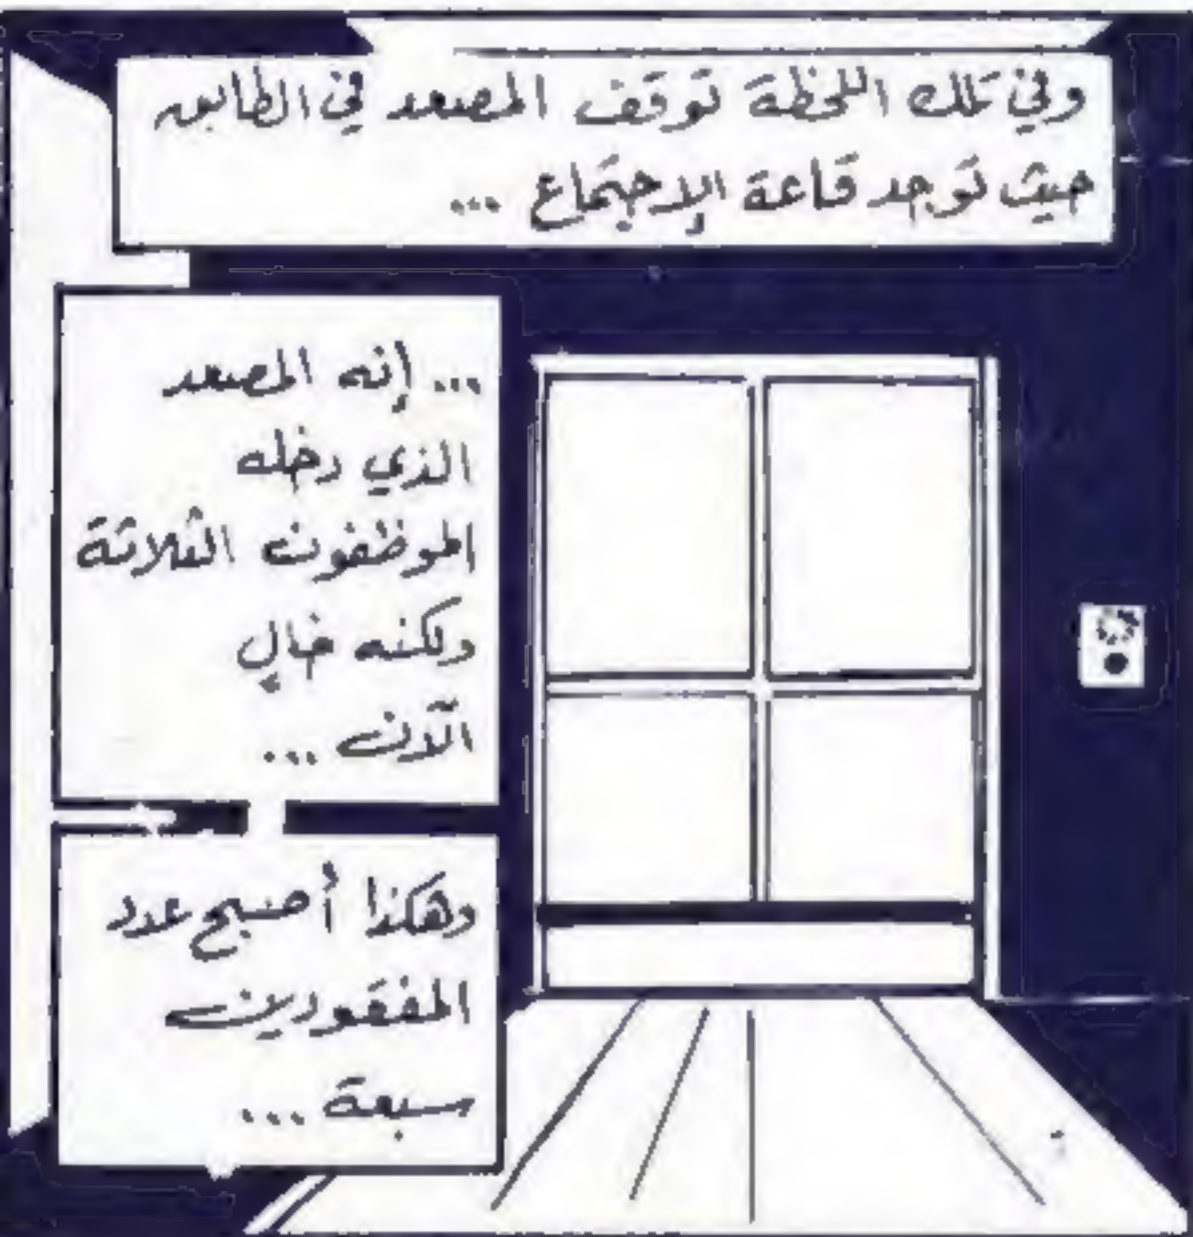 وفي تلك اللحظة توقف المصعد في الطابق
حيث توجد قاعة الإجتماع ...
... إنه المصعد
الذي دخله
الموظفون الثلاثة
ولكنه خالٍ
الآن ...
وهكذا أصبح عدد
المفقودين
سبعة ...